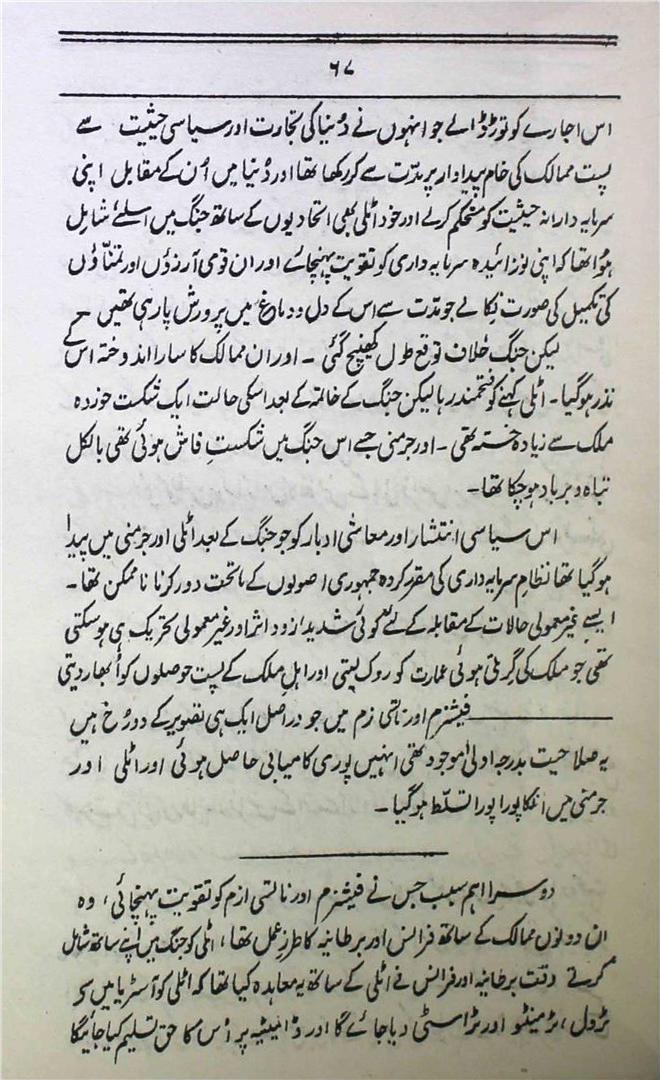 ۶۷
اس اجارے کو توڑ ڈالے جو انہوں نے دُنیا کی تجارت اور سیاسی حیثیت سے
پست ممالک کی خام پیداوار پر مدّت سے کر رکھا تھا اور دُنیا میں اُن کے مقابل اپنی
سرمایہ دارانہ حیثیت کو مستحکم کرلے اور خود اٹلی بھی اتحادیوں کے ساتھ جنگ میں اسلئے شامل
ہوا تھا کہ اپنی نوزائیدہ سرمایہ داری کو تقویت پہنچائے اور ان قومی آرزوؤں اور تمنّاؤں
کی تکمیل کی صورت نکالے جو مدت سے اس کے دل و دماغ میں پرورش پا رہی تھیں۔
لیکن جنگ خلاف توقع طول کھینچ گئی ۔ اور ان ممالک کا سارا اندوختہ اس کے
نذر ہوگیا۔ اٹلی کہنے کو فتحمند رہا لیکن جنگ کے خاتمہ کے بعد اسکی حالت ایک شکست خوردہ
ملک سے زیادہ خستہ تھی ۔ اور جرمنی جسے اس جنگ میں شکستِ فاش ہوئی تھی بالکل
تباہ و برباد ہوچکا تھا۔
اس سیاسی انتشار اور معاشی ادبار کو جو جنگ کے بعد اٹلی اور جرمنی میں پیدا
ہوگیا تھا نظامِ سرمایہ داری کی مقرر کردہ جمہوری اصولوں کے ماتحت دور کرنا ناممکن تھا ۔
ایسے غیر معمولی حالات کے مقابلہ کے لئے کوئی شدید از زود اثر اور غیر معمولی تحریک ہی ہوسکتی
تھی جو ملک کی گرتی ہوئی عمارت کو روک لیتی اور اہلِ ملک کے پست حوصلوں کو اُبھار دیتی
——— فیشنزم اور ناتسی زم میں جو دراصل ایک ہی تصویر کے دو رُخ ہیں
یہ صلاحیت بدرجہ اولیٰ موجود تھی انہیں پوری کامیابی حاصل ہوئی اور اٹلی اور
جرمنی میں انکا پورا پورا تسلّط ہوگیا ۔
دوسرا اہم سبب جس نے فیشنزم اور ناتسی ازم کو تقویت پہنچائی ، وہ
ان دونوں ممالک کے ساتھ فرانس اور برطانیہ کا طرزِ عمل تھا ، اٹلی کو جنگ میں اپنے ساتھ شامل
کرتے وقت برطانیہ اور فرانس نے اٹلی کے ساتھ یہ معاہدہ کیا تھا کہ اٹلی کو آسٹریا میں سے
ٹرول ، ٹرمینٹو اور ٹراسٹی دیا جائے گا اور پر اُس کا حق تسلیم کیا جائیگا